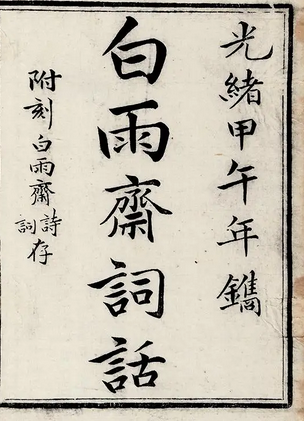 光緒甲午年鐫
白雨齋詞話
附刻白雨齋詩詞存